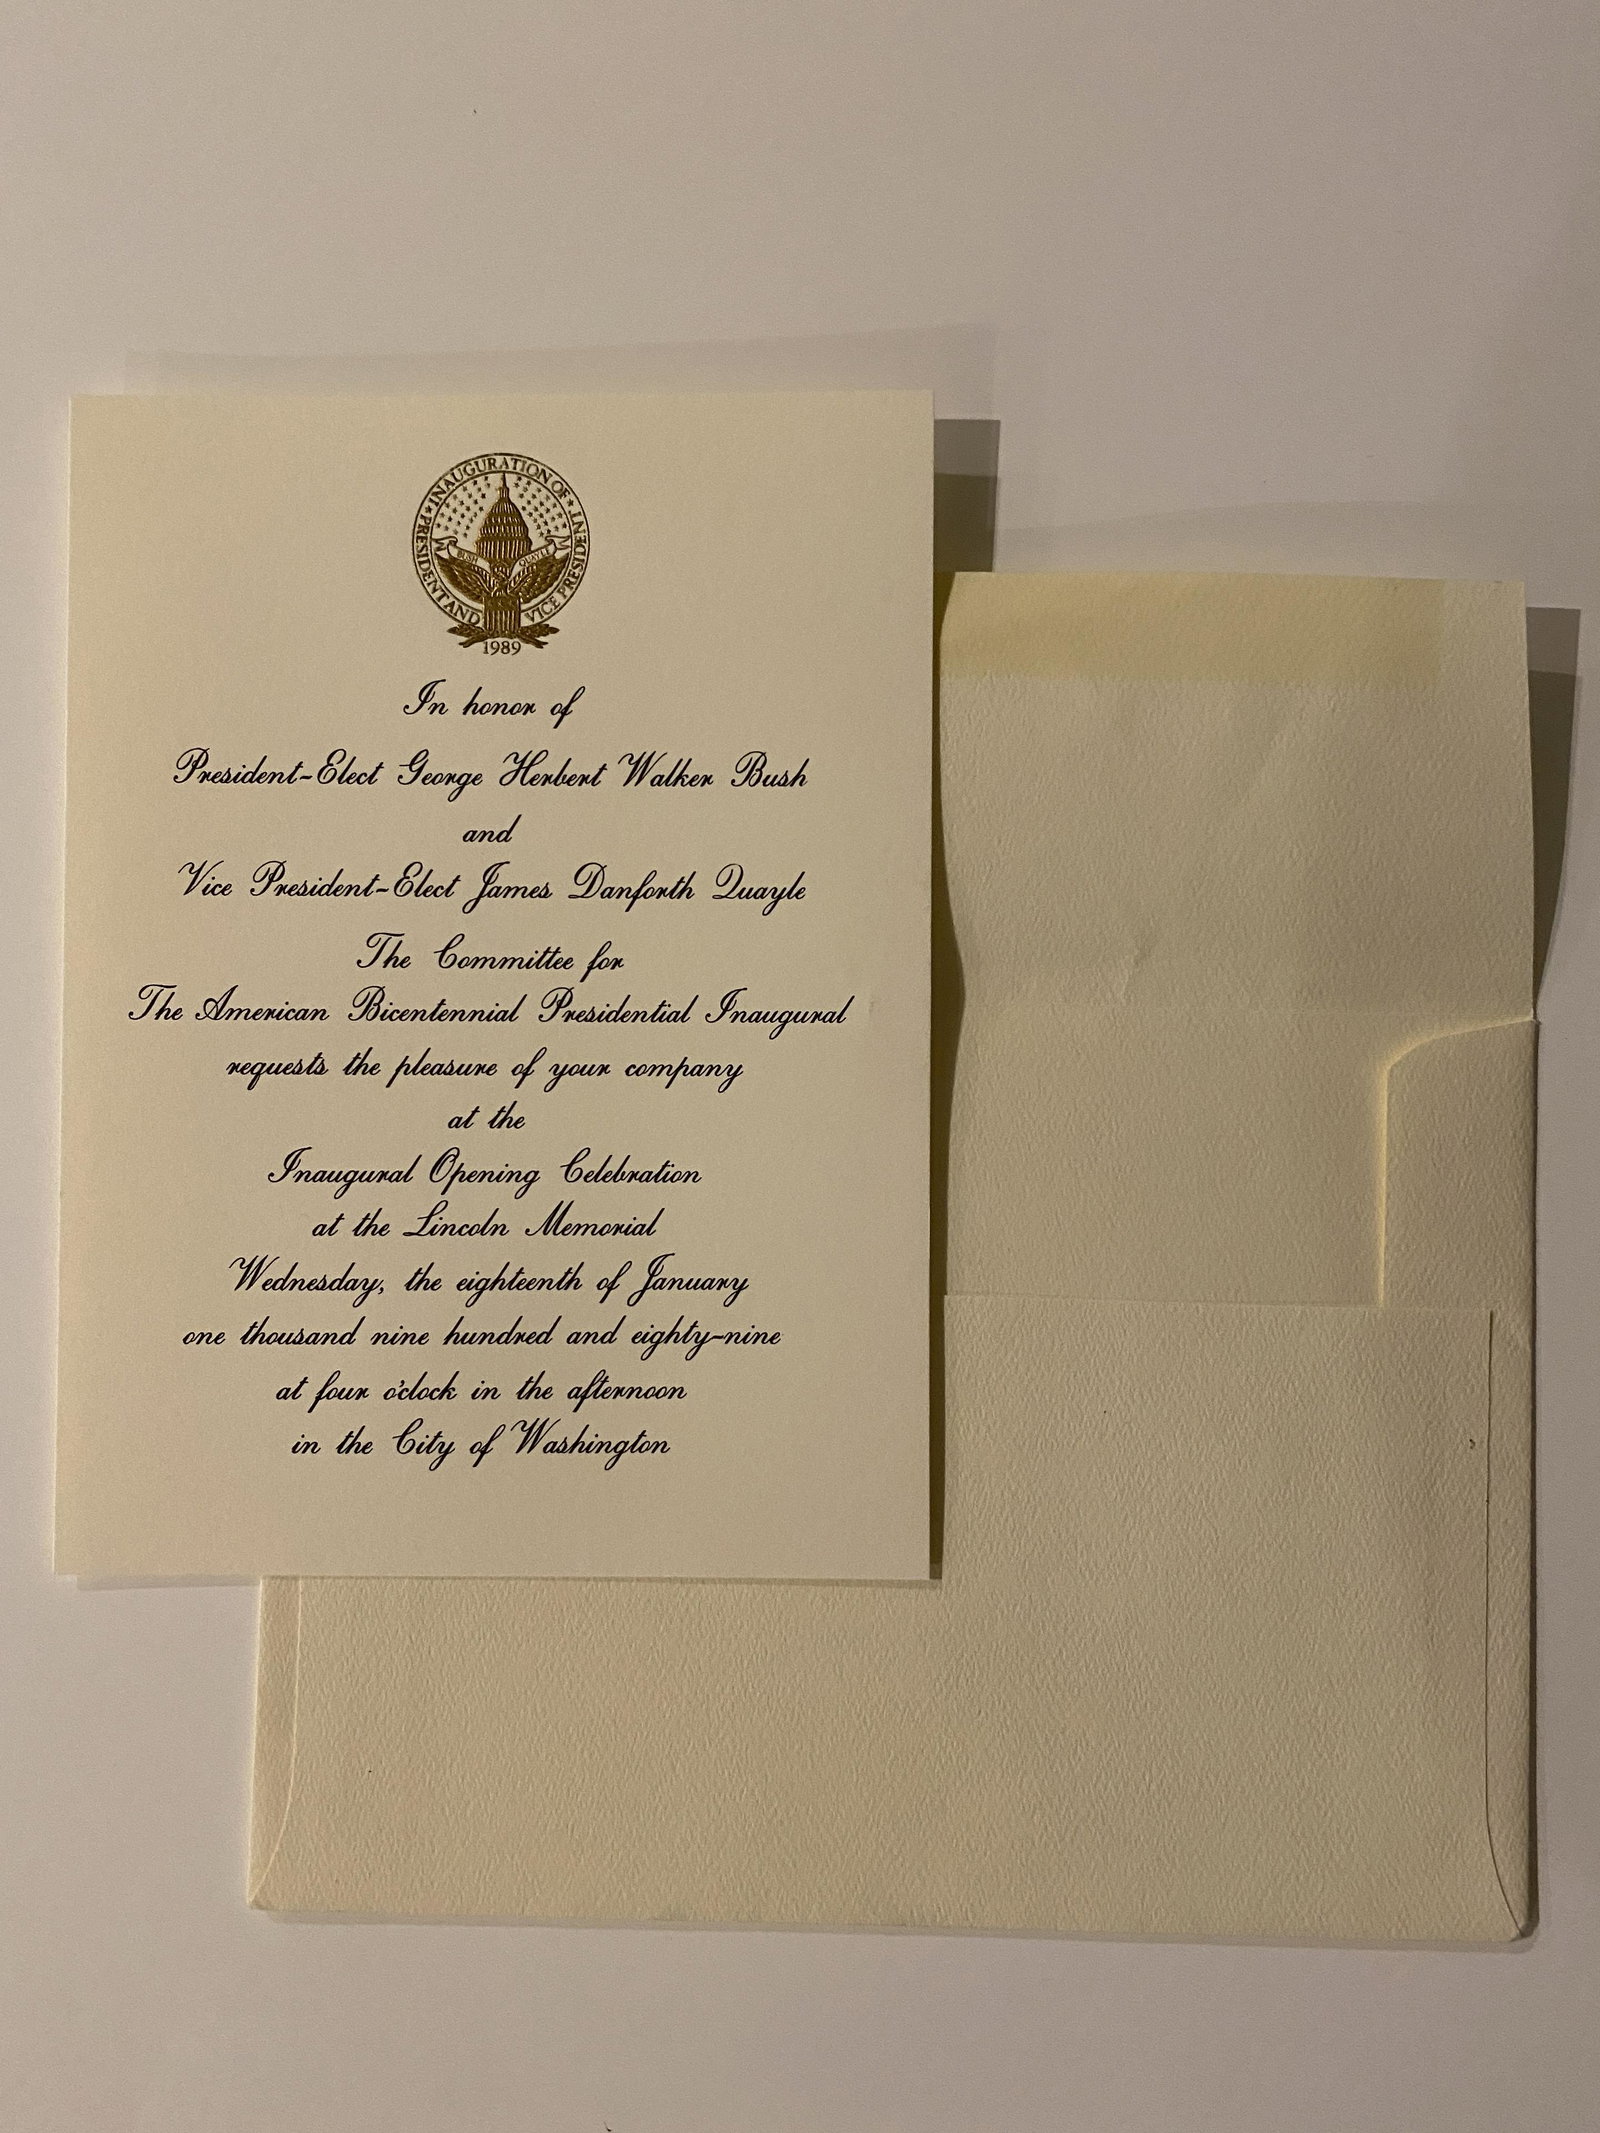 INAUGURATION OF
PRESIDENT AND
VICE PRESIDENT
BUSH
QUAYLE
1989
In honor of
President-Elect George Herbert Walker Bush
and
Vice President-Elect James Danforth Quayle
The Committee for
The American Bicentennial Presidential Inaugural
requests the pleasure of your company
at the
Inaugural Opening Celebration
at the Lincoln Memorial
Wednesday, the eighteenth of January
one thousand nine hundred and eighty-nine
at four o'clock in the afternoon
in the City of Washington